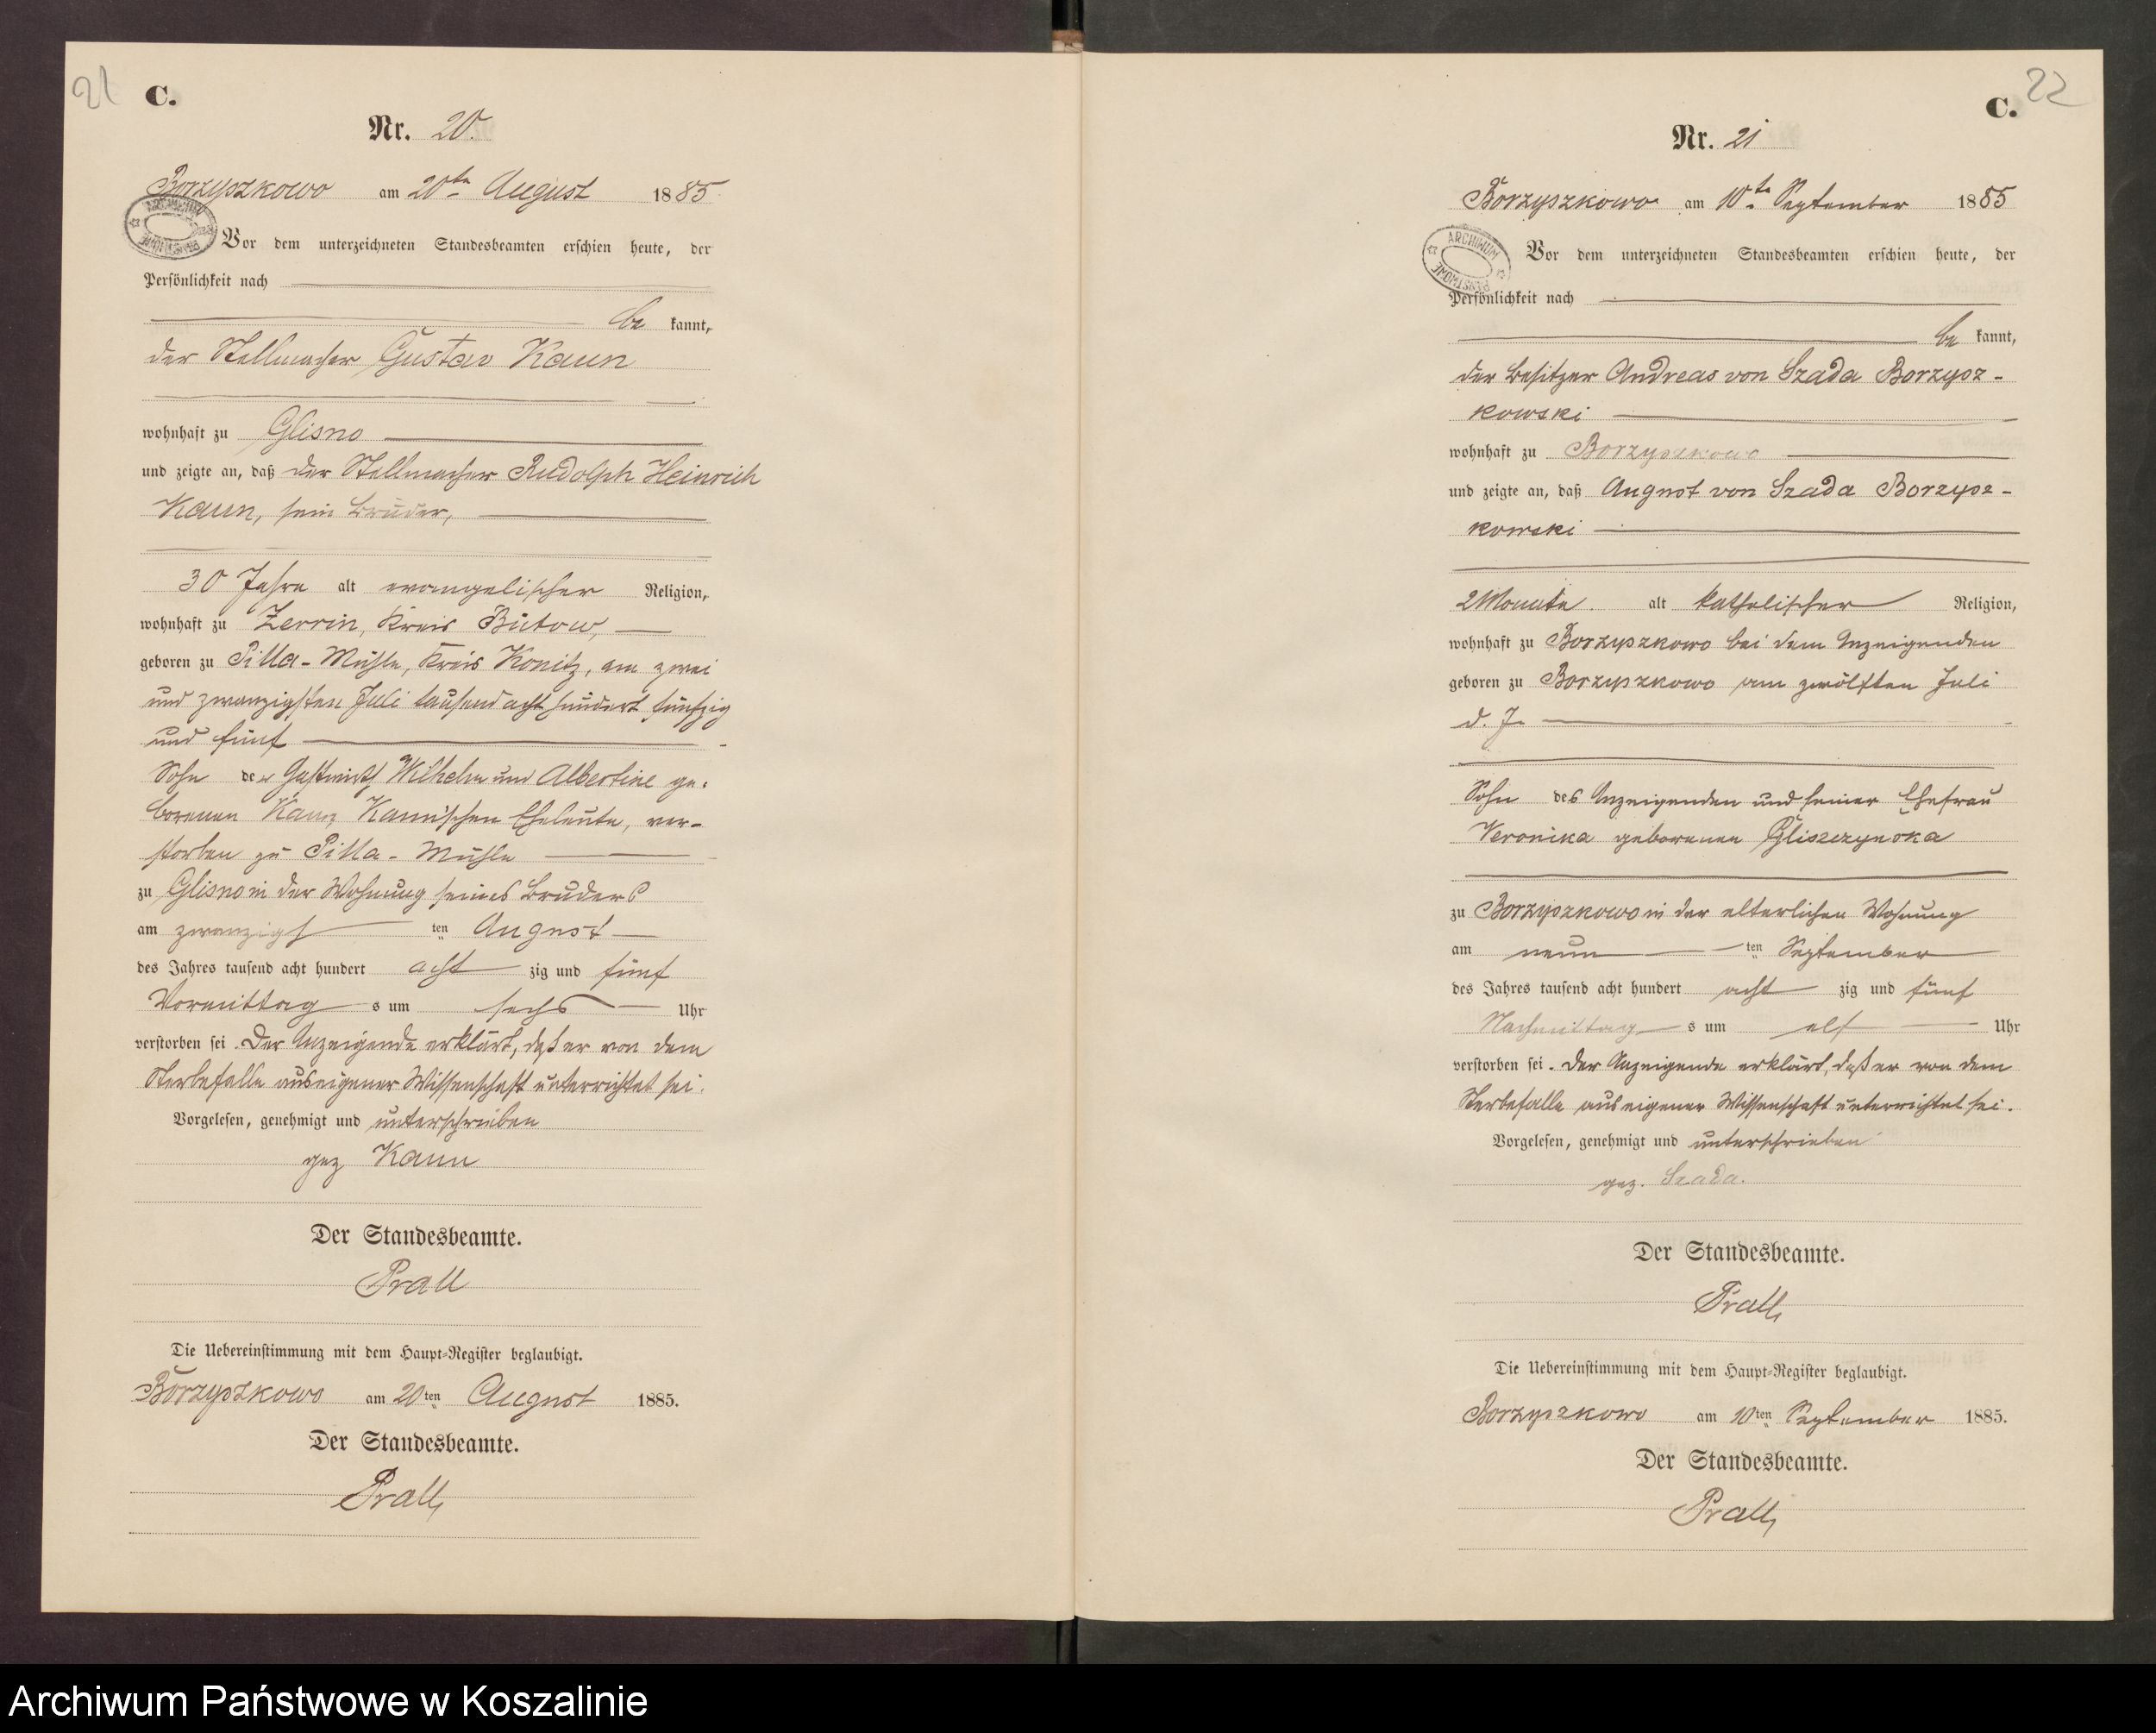 21
C.
Nr. 20.
Borzyszkowo am 20ten August 1885
ARCHIWUM PAŃSTWOWE
Vor dem unterzeichneten Standesbeamten erschien heute, der
Persönlichkeit nach
be kannt,
der Stellmacher Gustav Kaun
wohnhaft zu Glisno
und zeigte an, daß der Stellmacher Rudolph Heinrich
Kaun, sein Bruder,
30 Jahre alt evangelischer Religion,
wohnhaft zu Zerrin, Kreis Bütow,
geboren zu Pilla-Mühle, Kreis Konitz, am zwei
und zwanzigsten Juli tausend acht hundert fünfzig
und fünf
Sohn der Gastwirth Wilhelm und Albertine ge-
borenen Kaun'schen Eheleute, ver-
storben zu Pilla-Mühle
zu Glisno in der Wohnung seines Bruders
am zwanzigs ten August
des Jahres tausend acht hundert acht zig und fünf
Vormittag s um sechs Uhr
verstorben sei. Der Anzeigende erklärt, daß er von dem
Sterbefalle aus eigener Wissenschaft unterrichtet sei.
Vorgelesen, genehmigt und unterschrieben
gez Kaun
Der Standesbeamte.
Prall
Die Uebereinstimmung mit dem Haupt-Register beglaubigt.
Borzyszkowo am 20ten August 1885.
Der Standesbeamte.
Prall
22
C.
Nr. 21
Borzyszkowo am 10ten September 1885
ARCHIWUM PAŃSTWOWE
Vor dem unterzeichneten Standesbeamten erschien heute, der
Persönlichkeit nach
be kannt,
der Besitzer Andreas von Szada Borzysz-
kowski
wohnhaft zu Borzyszkowo
und zeigte an, daß August von Szada Borzysz-
kowski
2 Monate alt katholischer Religion,
wohnhaft zu Borzyszkowo bei dem Anzeigenden
geboren zu Borzyszkowo am zwölften Juli
d. J.
Sohn des Anzeigenden und seiner Ehefrau
Veronika geborenen Gliszczynska
zu Borzyszkowo in der elterlichen Wohnung
am neun ten September
des Jahres tausend acht hundert acht zig und fünf
Nachmittag s um elf Uhr
verstorben sei. Der Anzeigende erklärt, daß er von dem
Sterbefalle aus eigener Wissenschaft unterrichtet sei.
Vorgelesen, genehmigt und unterschrieben
gez. Szada.
Der Standesbeamte.
Prall
Die Uebereinstimmung mit dem Haupt-Register beglaubigt.
Borzyszkowo am 10ten September 1885.
Der Standesbeamte.
Prall
Archiwum Państwowe w Koszalinie